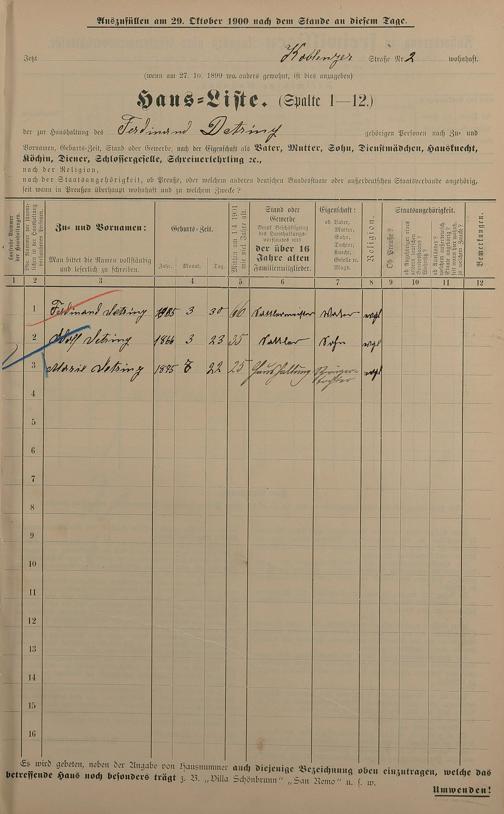 Auszufüllen am 29. Oktober 1900 nach dem Stande an diesem Tage.
Jetzt Koblenzer Straße Nr. 2 wohnhaft.
(wenn am 27. 10. 1899 wo anders gewohnt, ist dies anzugeben)
Haus-Liste. (Spalte 1—12.)
der zur Haushaltung des Ferdinand Detring gehörigen Personen nach Zu- und
Vornamen, Geburts-Zeit, Stand oder Gewerbe, nach der Eigenschaft als Vater, Mutter, Sohn, Dienstmädchen, Hausknecht,
Köchin, Diener, Schlossergeselle, Schreinerlehrling ꝛc.,
nach der Religion,
nach der Staatsangehörigkeit, ob Preuße, oder welchem anderen deutschen Bundesstaate oder außerdeutschen Staatsverbande angehörig,
seit wann in Preußen überhaupt wohnhaft und zu welchem Zwecke?
Laufende Nummer der Haushaltungen.
Zu- und Vornamen:
Man bittet die Namen vollständig und leserlich zu schreiben.
Geburts-Zeit.
Jahr. Monat. Tag.
Stand oder Gewerbe
der über 16 Jahre alten Familienmitglieder.
Eigenschaft:
ob Vater, Mutter, Sohn, Tochter, Knecht, Geselle, Magd.
Religion.
Staatsangehörigkeit.
Ob Preuße?
Bemerkungen.
1 2 3 4 5 6 7 8 9 10 11 12
1 Ferdinand Detring 3 30 66 Sattlermeister Vater evgl
2 Adolf Detring 3 23 35 Sattler Sohn evgl
3 Marie Detring 22 25 Haushaltung evgl
4
5
6
7
8
9
10
11
12
13
14
15
16
Es wird gebeten, neben der Angabe von Hausnummer auch diejenige Bezeichnung oben einzutragen, welche das
betreffende Haus noch besonders trägt z. B. „Villa Schönbrunn" „San Remo" u. s. w.
Umwenden!